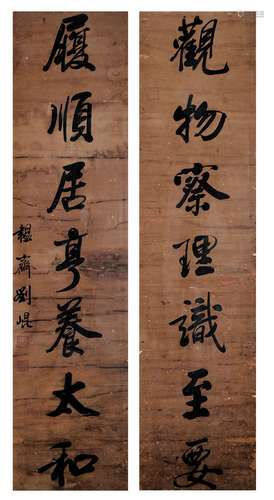 觀物察理識至要
履順居亨養太和
韞齋劉崐